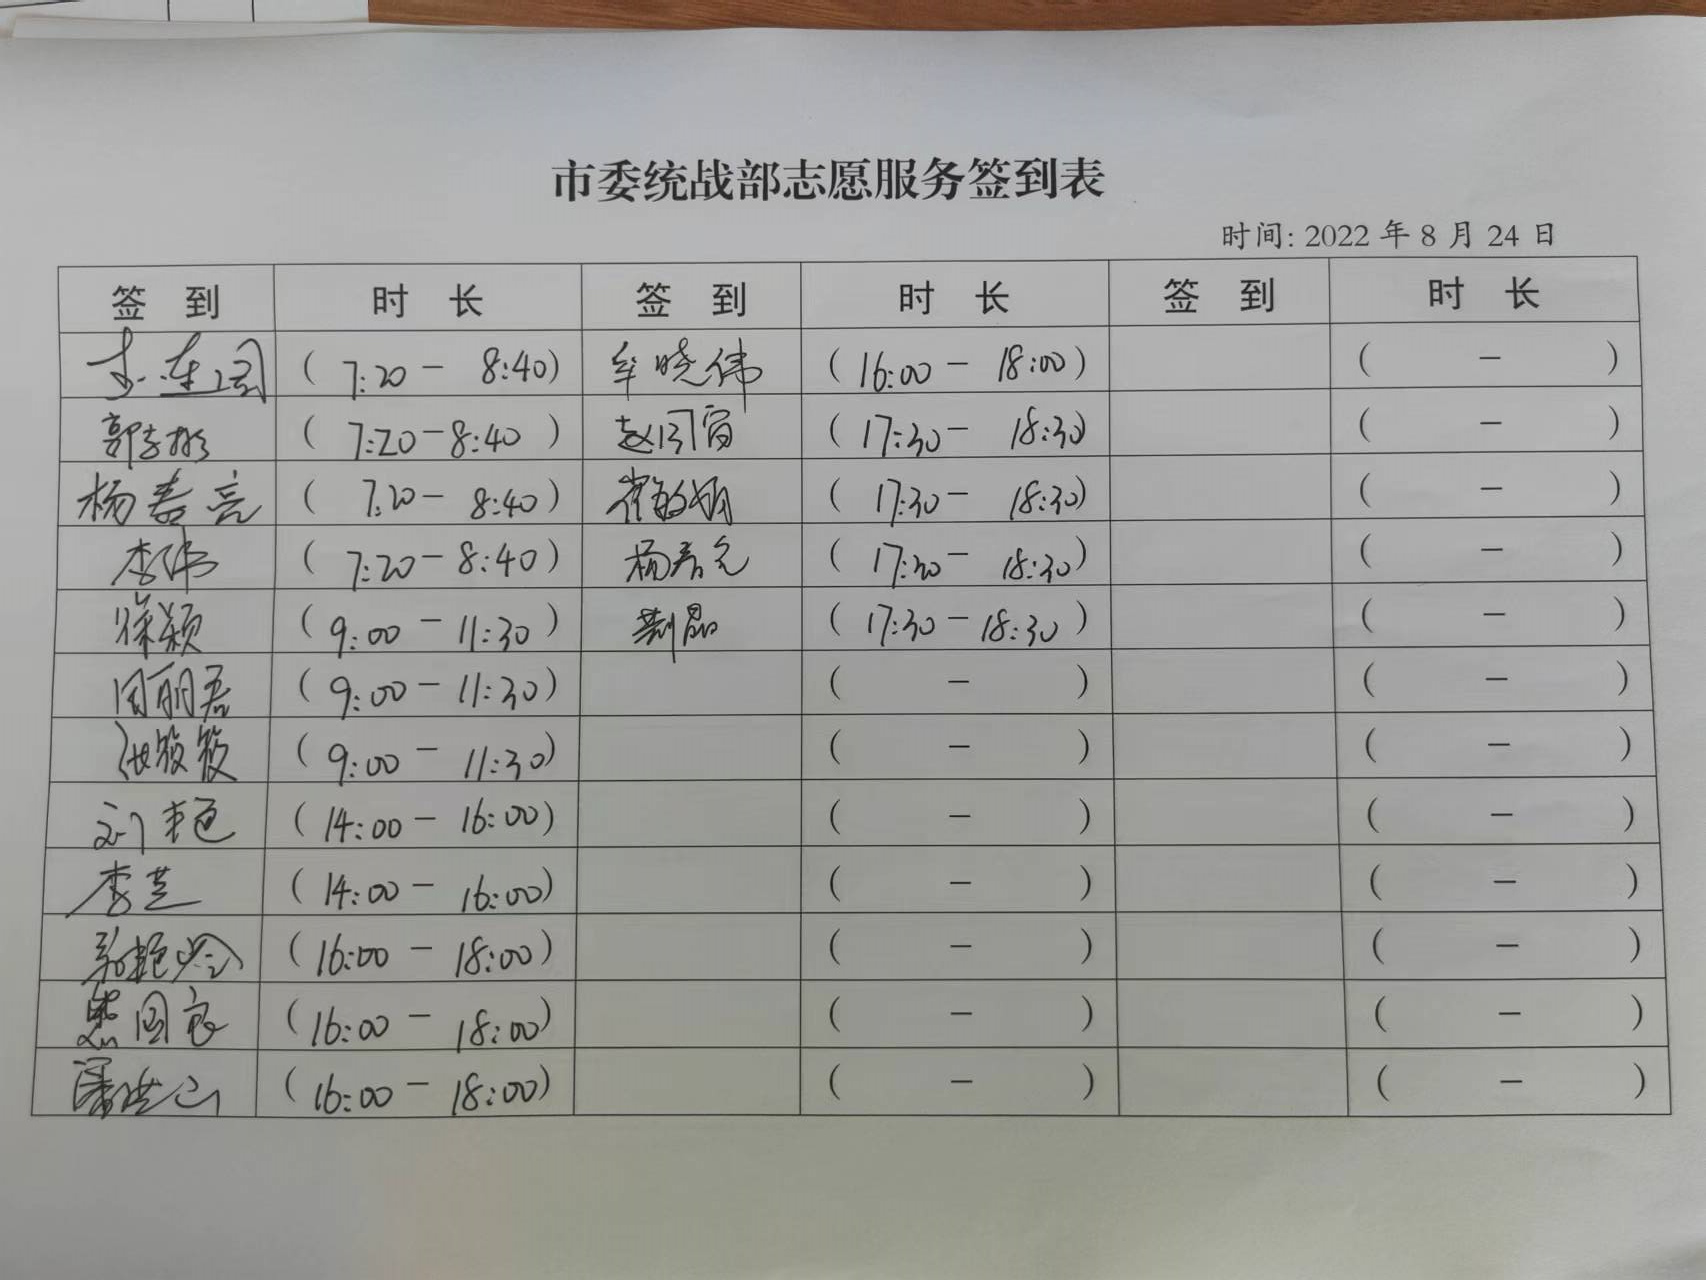 市委统战部志愿服务签到表
时间: 2022 年 8 月 24 日
签 到 时 长 签 到 时 长 签 到 时 长
( 7:20 - 8:40) 牟晓伟 (16:00 - 18:00) ( - )
( 7:20-8:40 ) (17:30 - 18:30) ( - )
杨春亮 ( 7:20 - 8:40) 崔敏娟 (17:30 - 18:30) ( - )
李伟 ( 7:20-8:40) 杨春元 (17:30 - 18:30) ( - )
徐颖 (9:00 - 11:30) 荆晶 (17:30 - 18:30) ( - )
闫丽君 (9:00 - 11:30) ( - ) ( - )
张筱筱 (9:00 - 11:30) ( - ) ( - )
刘艳 (14:00 - 16:00) ( - ) ( - )
李芝 (14:00 - 16:00) ( - ) ( - )
(16:00 - 18:00) ( - ) ( - )
(16:00 - 18:00) ( - ) ( - )
(16:00 - 18:00) ( - ) ( - )